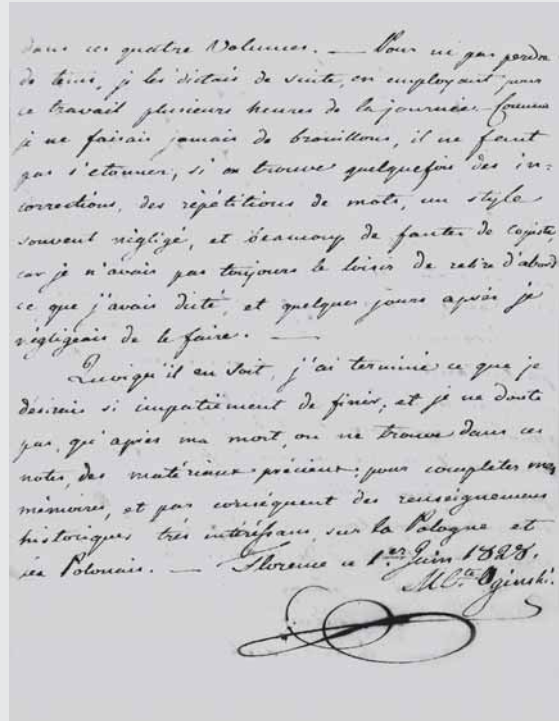 dans ces quatre Volumes. — Pour ne pas perdre
de tems, je les dictais de suite, en employant pour
ce travail plusieurs heures de la journée. Comme
je ne faisais jamais de brouillons, il ne faut
pas s'etonner, si on trouve quelquefois des in-
corrections, des répétitions de mots, un style
souvent négligé, et beaucoup de fautes de copiste
car je n'avais pas toujours le loisir de relire d'abord
ce que j'avais dicté, et quelques jours après je
négligeais de le faire. —
Quoiqu'il en soit, j'ai terminé ce que je
désirais si impatiemment de finir, et je ne doute
pas, qu'après ma mort, on ne trouve dans ces
notes, des matériaux précieux pour completer mes
mémoires, et par conséquent des renseignemens
historiques très intéressans, sur la Pologne et
les Polonais. — Florence ce 1er Juin 1828.
Ml. Cte Oginski.